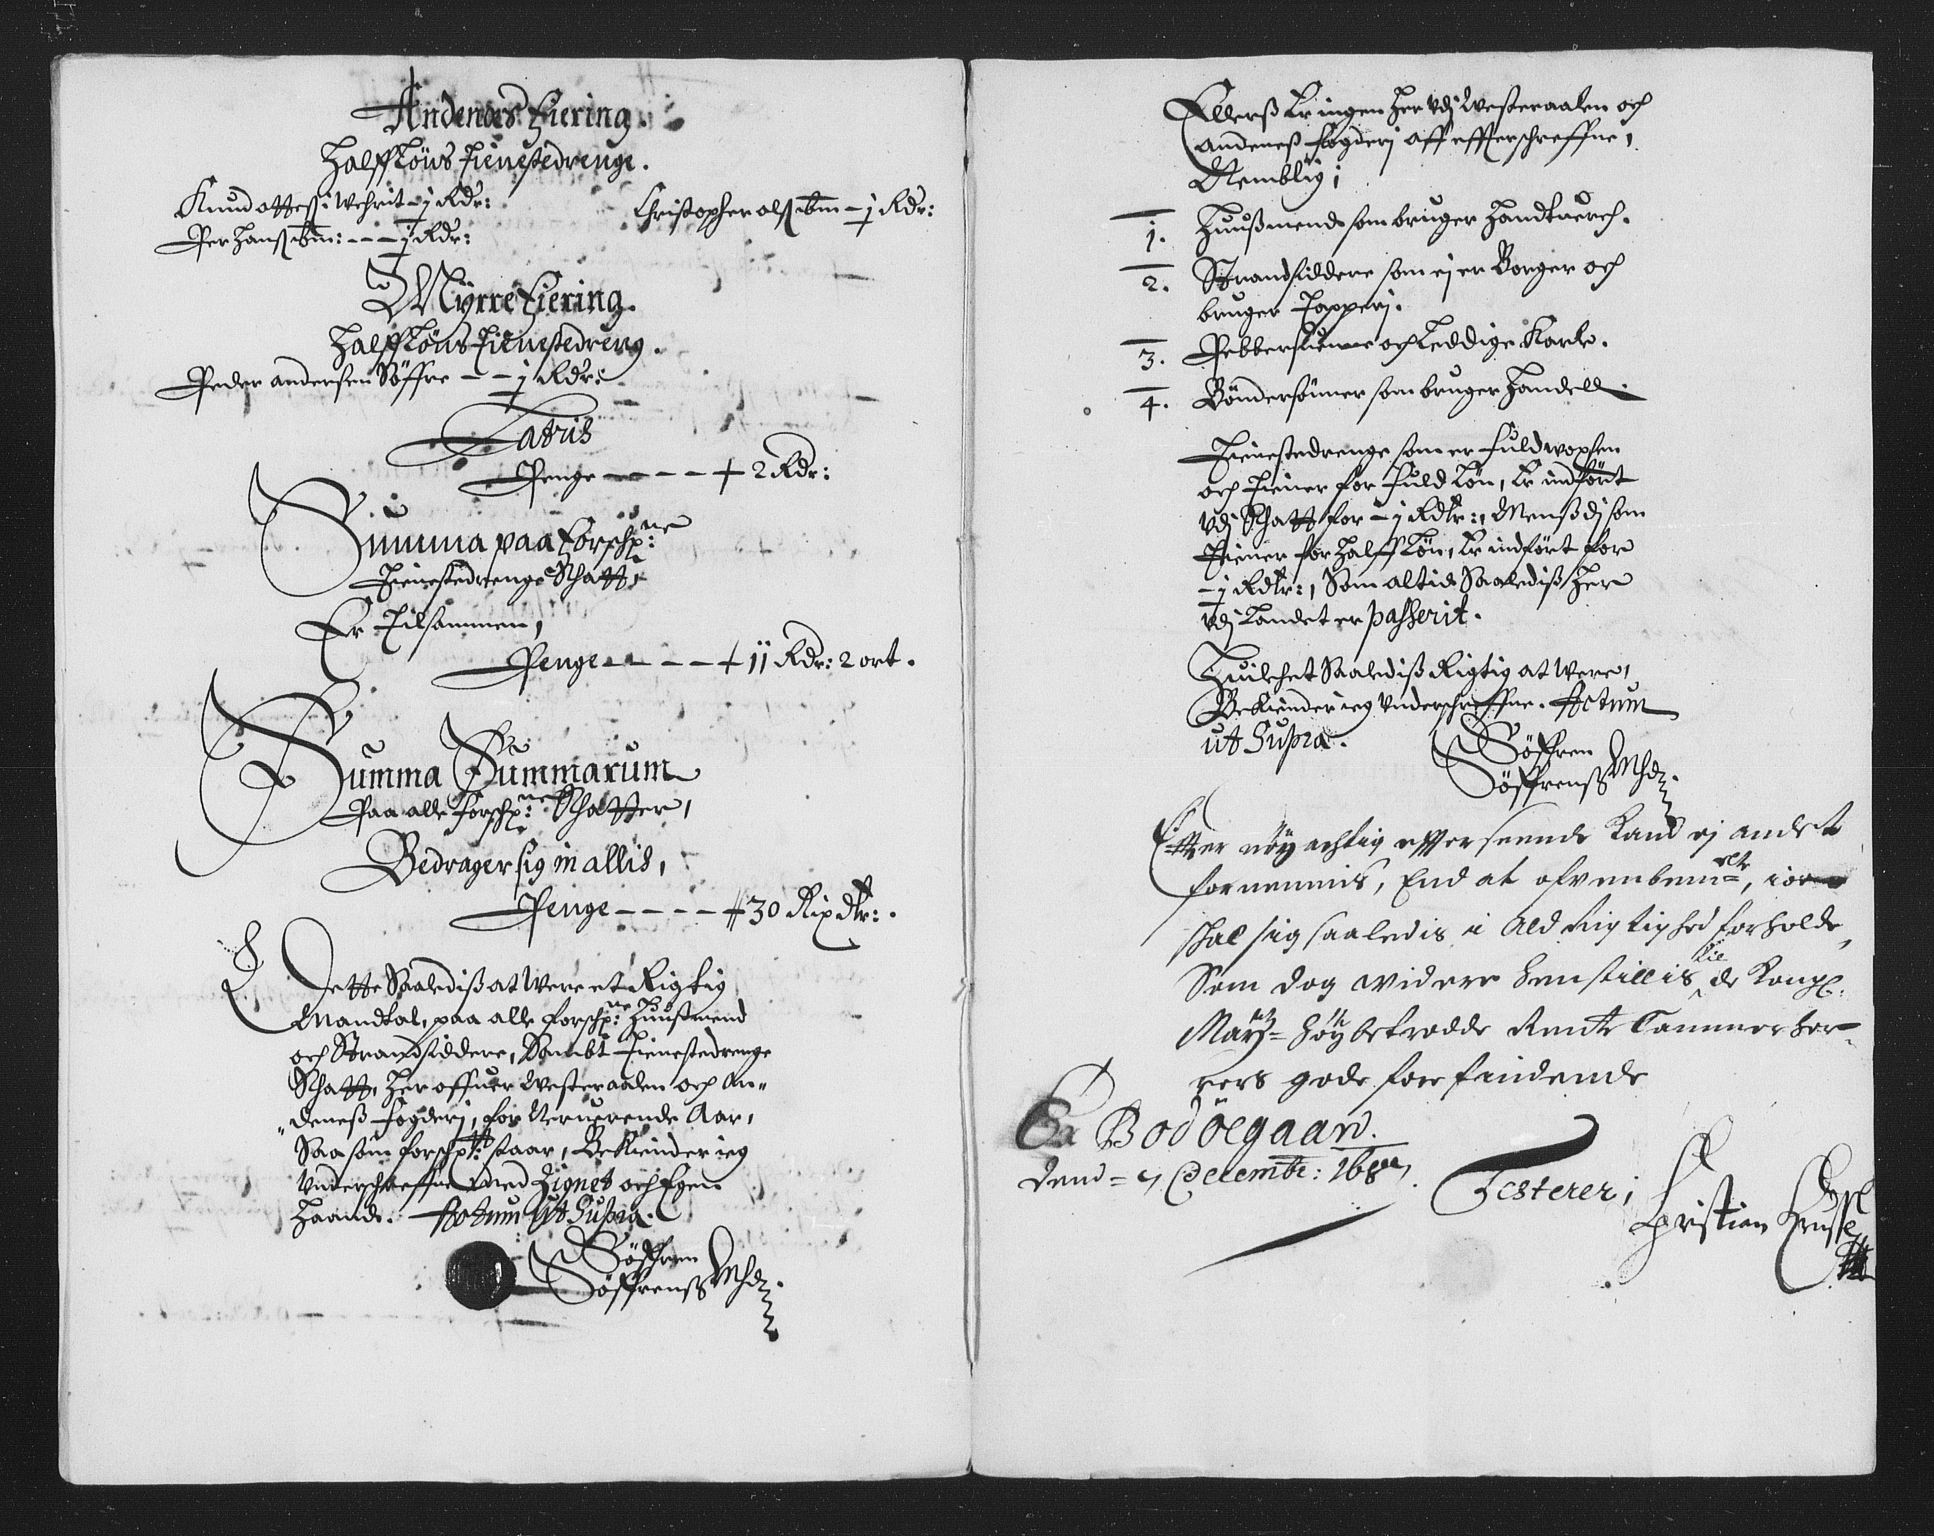 Andenæs Fiering.
Halff Löns Tienestedrenge.
Knud ottess: Wehrit - ½ Rdr:
Christopher olss ibm - ½ Rdr:
Per Hanss ibm: - - ½ Rdr:
Myrre Fiering.
Halff Löns Tienestedreng.
Peder andersen Söffre - - ½ Rdr:
Latus
Penge - - - - 2 Rdr:
Summa paa Forschp:ne
Tienestedrenge Schatt,
Er Tilsammen,
Penge - - - - 11 Rdr: 2 ort.
Summa Summarum
Paa alle forschp:ne Schatter,
Bedrager sig in allis,
Penge - - - - 30 Rix Dlr:.
Dette Saalediß at Were et Rigtig
Mandtal, paa alle forschp:ne Huußmend
och Strandsiddere, Sambt Tienestedrenge
Schatt, Her offuer Westeraalen och An-
deneß fogderj, for Neruerende Aar,
Saa som forschp:tt staar, Bekiender ieg
Underschreffne med Zignet och Egen
Haand. Actum Ut Supra.
Söffren
Söffrenß
Ellerß Er ingen Her Udj Westeraalen och
Andeneß fogderj aff effterschreffne,
Nemblig;
1. Huußmend som bruger Handtuerch.
2. Strandsiddere som ej er Borger och
bruger Tapperj.
3. Pebbersuenne och Leddige Karle.
4. Böndersönner som bruger Handell.
Tienestedrenge som er fuldwoxsen
och Tiener for fuld Lön, Er indfört
Udj Schatt for - 1 Rdlr:, Menß dj som
Tiener for Halff Lön, Er indfört for
- ½ Rdlr:, Som altid Saalediß Her
Udj Landet er passerit.
Huilchet Saalediß Rigtig at Were,
Bekiender ieg Underschreffne. Actum
ut Supra.
Söffren
Söffrenß
Effter nöyachtig efferseende Kand ej andet
fornemmis, End at ofvenbem:te,
schal sig saaledis i Ald Rigtighed forholde,
Som dog widere henstillis til de Kongl:
May:tz höybetrodde Rente Cammer her-
rers gode forefindende
Ex Bodöegaard.
Dend = 7 Decembr: 168
Testerer;
Christian